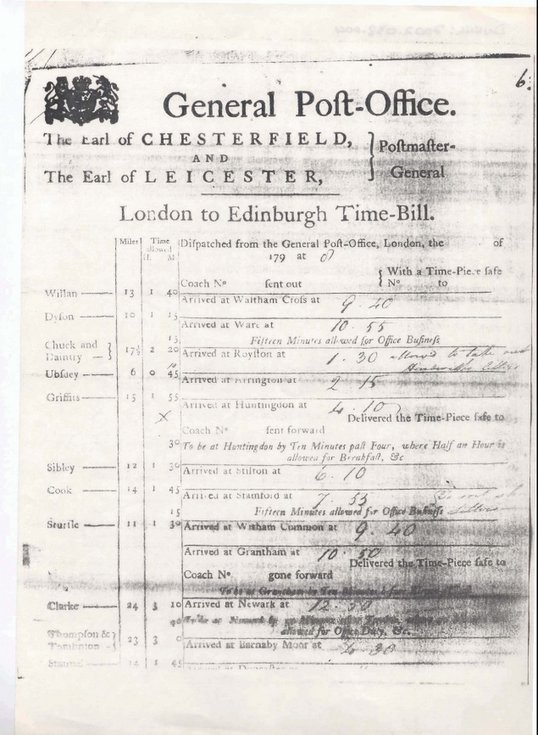 6.
General Post-Office.
The Earl of CHESTERFIELD,
AND
The Earl of LEICESTER,
Postmaster-
General
London to Edinburgh Time-Bill.
Miles Time allowed Dispatched from the General Post-Office, London, the of
H. M. 179 at
Coach No sent out With a Time-Piece safe
No. to
Willan 13 1 40 Arrived at Waltham Cross at 9.40
Dyson 10 1 15 Arrived at Ware at 10.55
15 Fifteen Minutes allowed for Office Business
Chuck and
Dantry 17½ 2 20 Arrived at Royston at 1.30 allowed to take
Ubsuey 6 0 45 Arrived at Arrington at 2 15
Griffits 15 1 55 Arrived at Huntingdon at 4.10
Delivered the Time-Piece safe to
X Coach No. sent forward
30 To be at Huntingdon by Ten Minutes past Four, where Half an Hour is
allowed for Breakfast, &c
Sibley 12 1 30 Arrived at Stilton at 6.10
Cook 14 1 45 Arrived at Stamford at 7.55
15 Fifteen Minutes allowed for Office Business
11 1 30 Arrived at Witham Common at 9.40
Arrived at Grantham at 10.50
Delivered the Time-Piece safe to
Coach No. gone forward
Clarke 24 3 10 Arrived at Newark at 12.30
allowed for Office Duty, &c.
Thompson &
23 3 0 Arrived at Barnaby Moor at 4 30
14 1 45